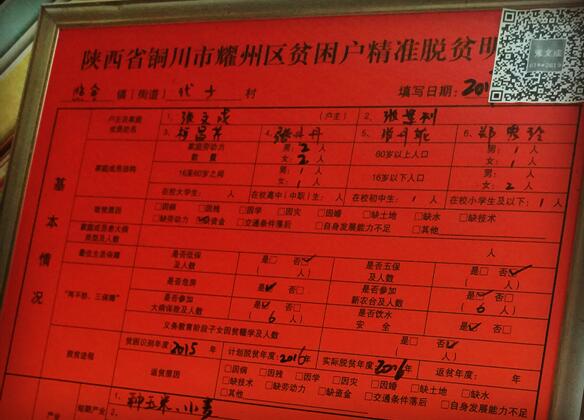 陕西省铜川市耀州区贫困户精准脱贫明
镇(街道) 村 填写日期: 201
张文成
户主及家庭成员姓名 1、张文成 (户主) 2、张
3、 4、张丹丹 5、 6、郑
家庭成员结构 家庭劳动力数量 男:2人 女:2人 60岁以上人口 男:1人 女:1人
16至60岁之间 男:1人 女:1人 16岁以下人口 男: 人 女:2人
在校大学生: 人 在校高中(中职)生: 人 在校初中生:1人 在校小学生及以下:1人
致贫原因 □因病 □因残 □因学 □因灾 □因婚 □缺土地 □缺水 □缺技术
□缺劳动力 ☑缺资金 □交通条件落后 □自身发展能力不足 □其他
家庭成员患大病类型及人数 人
最低生活保障 是否低保及人数 是□ 否☑ ( 人) 是否五保及人数 是□ 否☑ ( 人)
"两不愁、三保障" 是否危房 是□ 否☑ 是否参加新农合及人数 是☑ 否□ (6人)
是否参加大病保险及人数 是☑ 否□ (6人) 是否饮水安全 是☑ 否□
义务教育阶段子女因贫辍学及人数 是□ 否☑ ( 人)
脱贫进程 贫困识别年度:2015年 计划脱贫年度:2016年 实际脱贫年度:2016年 返贫年度: 年
返贫原因 □因病 □因残 □因学 □因灾 □因婚 □缺土地 □缺水
□缺技术 □缺劳动力 □缺资金 □交通条件落后 □自身发展能力不足
□其他
基本情况
产业 短期产业 1、种玉米、小麦
2、